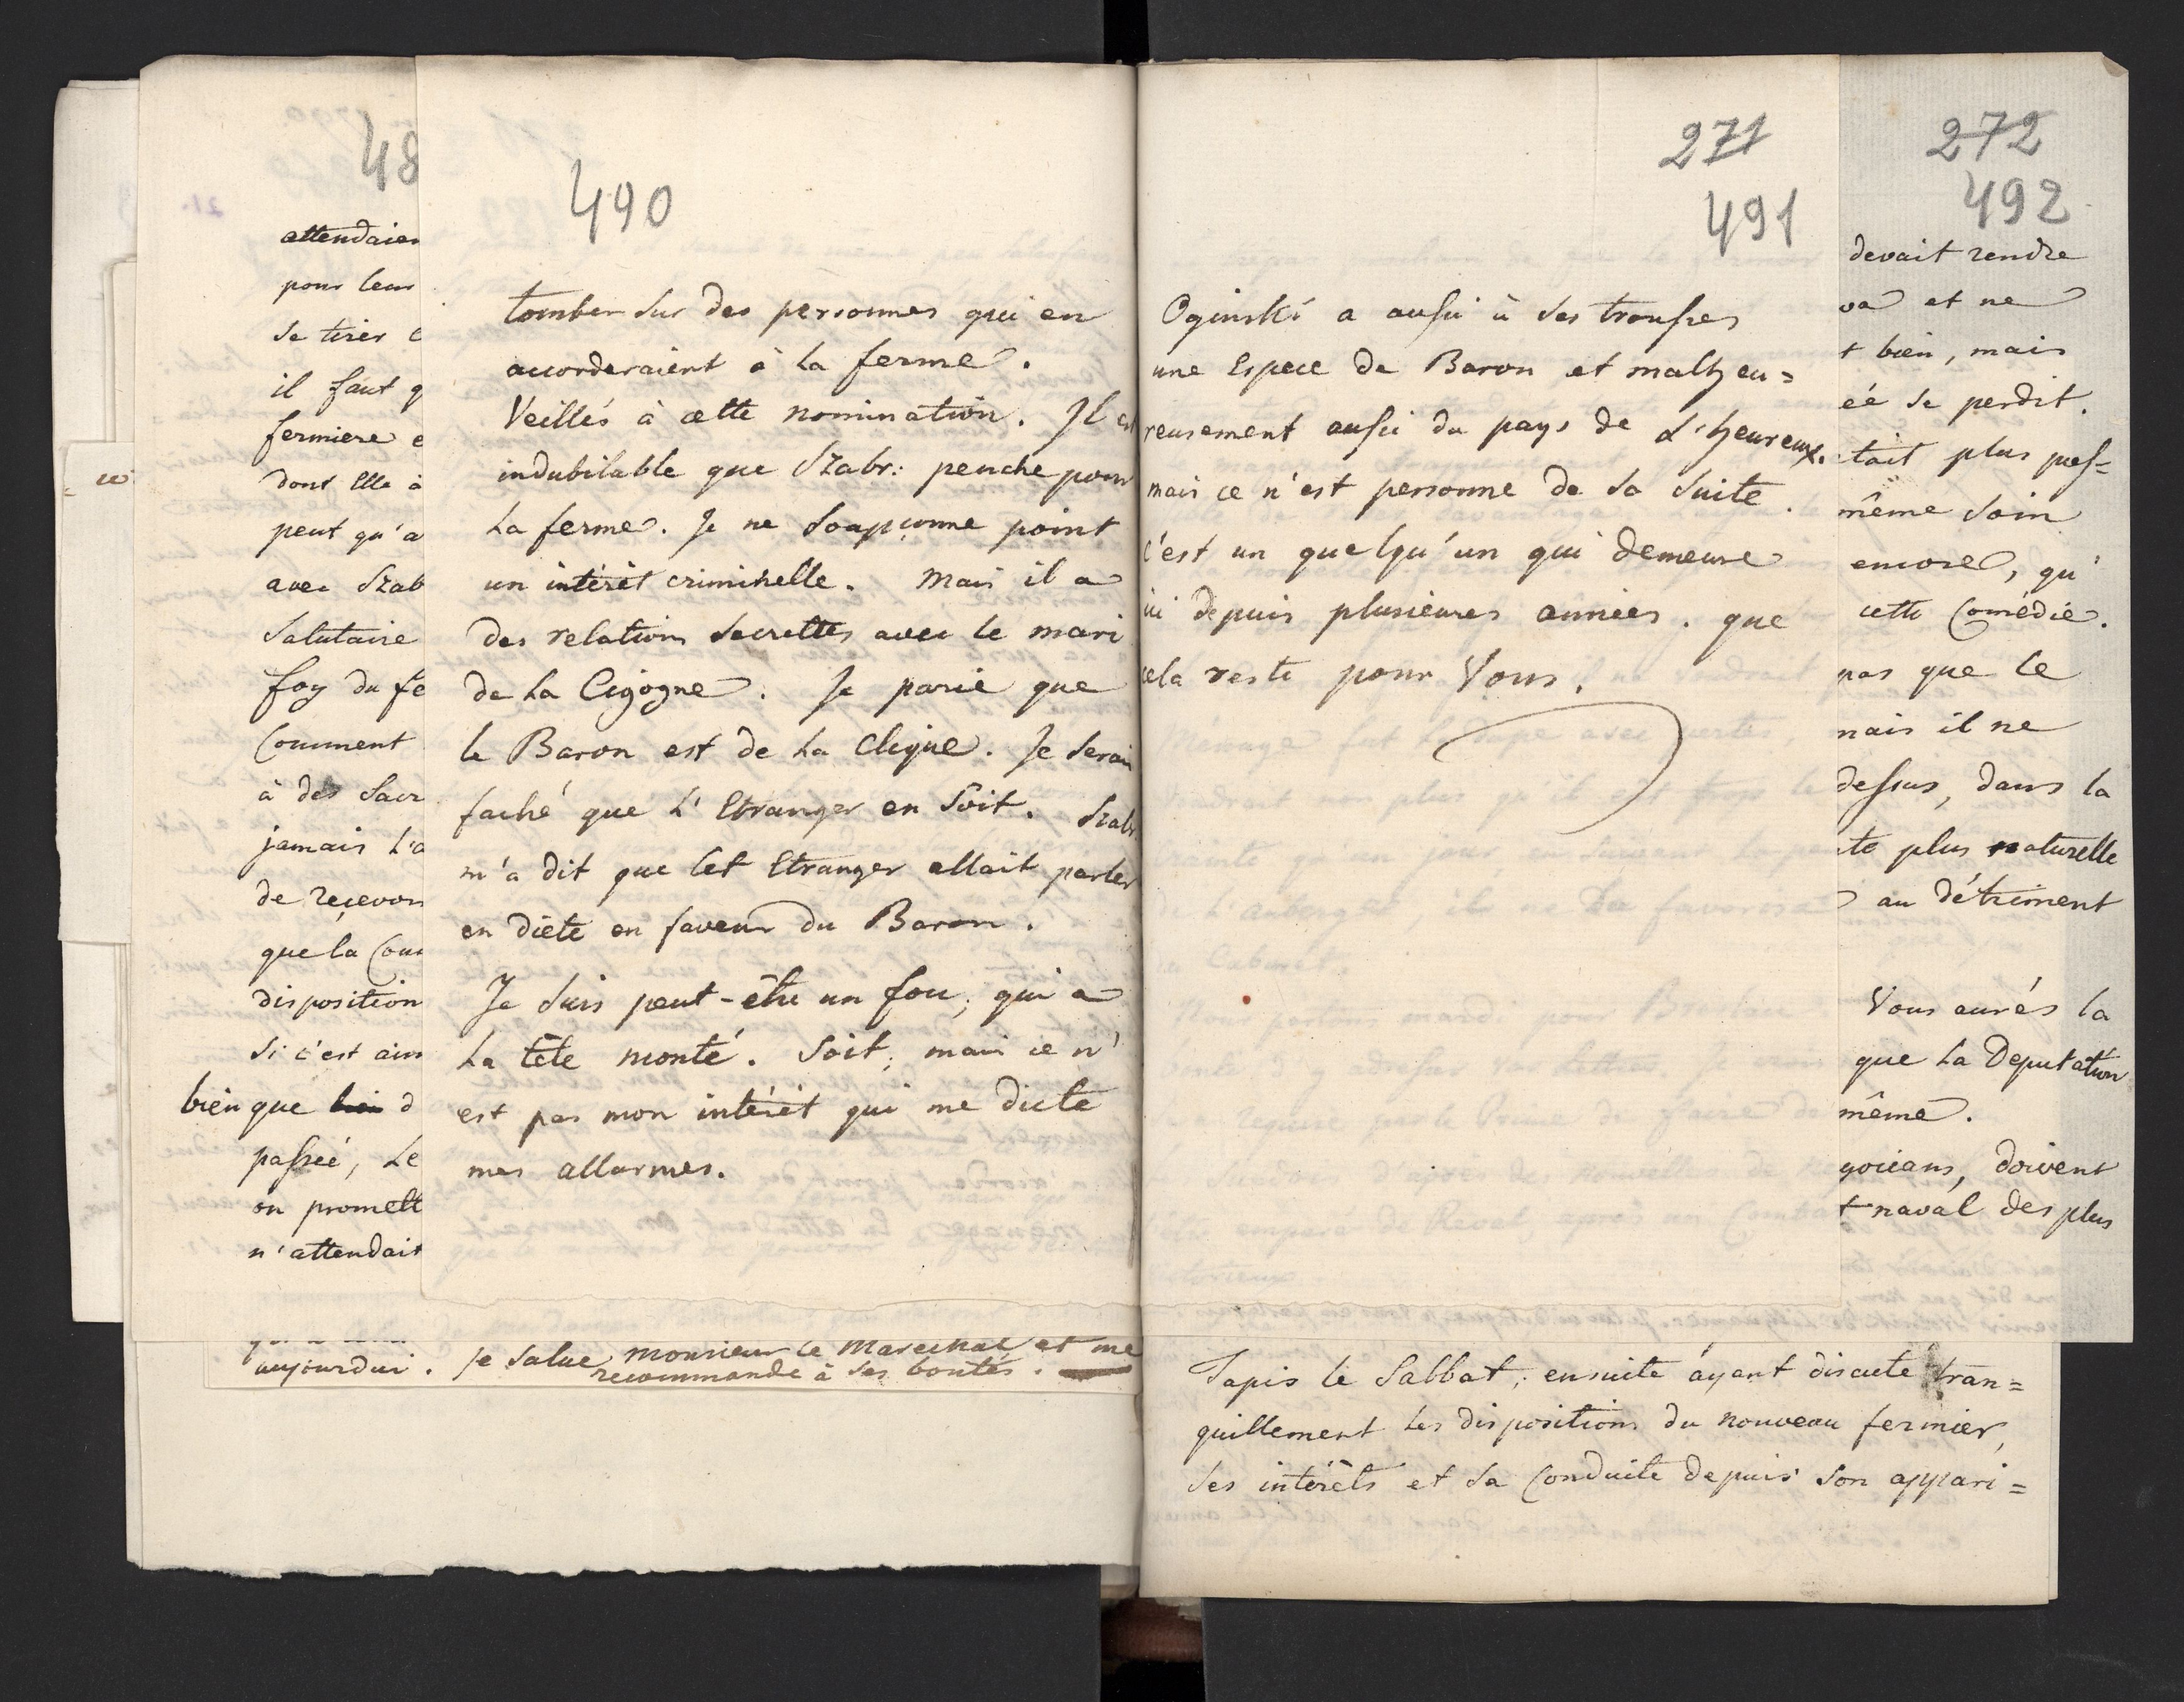 48
attendaien
pour leur
se tirer
il faut q
fermiere e
dont Elle à
peut qu'a
avec Szab
Salutaire
foy du fe
Comment
à des Sacr
jamais l'a
de reçevoir
que la Cour
disposition
Si c'est ain
bien que d
passée, Le
on promett
n'attendait
490
tomber Sur des personnes qui en
accorderaient à la ferme.
Veillés à cette nomination. Il est
indubitable que Szabr: penche pour
La ferme. Je ne Soupçonne point
un intérêt criminelle. Mais il a
des relations Secrettes avec le mari
de la Cigogne. Je parie que
le Baron est de la Clique. Je Serais
faché que L'Etranger en Soit. Szabr
m'a dit que Cet Etranger allait parler
en diète en faveur du Baron.
Je Suis peut-être un fou, qui a
La tête monté. Soit, mais ce n'
est pas mon intérêt qui me dicte
mes allarmes.
aujourdui. Je Salue monsieur le Marechal et me
recommande à Ses bontés.
271
491
Oginski a aussi à Ses trousses
une Espece de Baron et malheu=
reusement aussi du pays de L'heureux.
mais ce n'est personne de Sa Suite.
C'est un quelqu'un qui demeure
ici depuis plusieures années. que
cela reste pour Vous.
272
492
devait rendre
va et ne
t bien, mais
éé Se perdit.
tait plus pres=
même Soin
encore, qu'
cette Comédie.
pas que le
mais il ne
dessus, dans la
te plus naturelle
au détriment
Vous aurés la
que La Deputation
même.
goicians, doivent
t naval des plus
Tapis le Sabbat; ensuite áyant discuté tran=
quillement les dispositions du nouveau fermier,
Ses intérêts et Sa Conduite depuis Son appari=